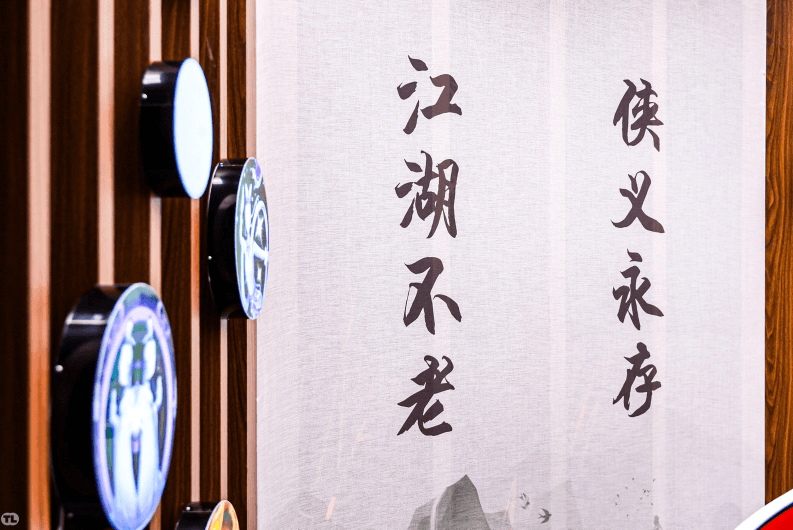 侠义永存
江湖不老
TL